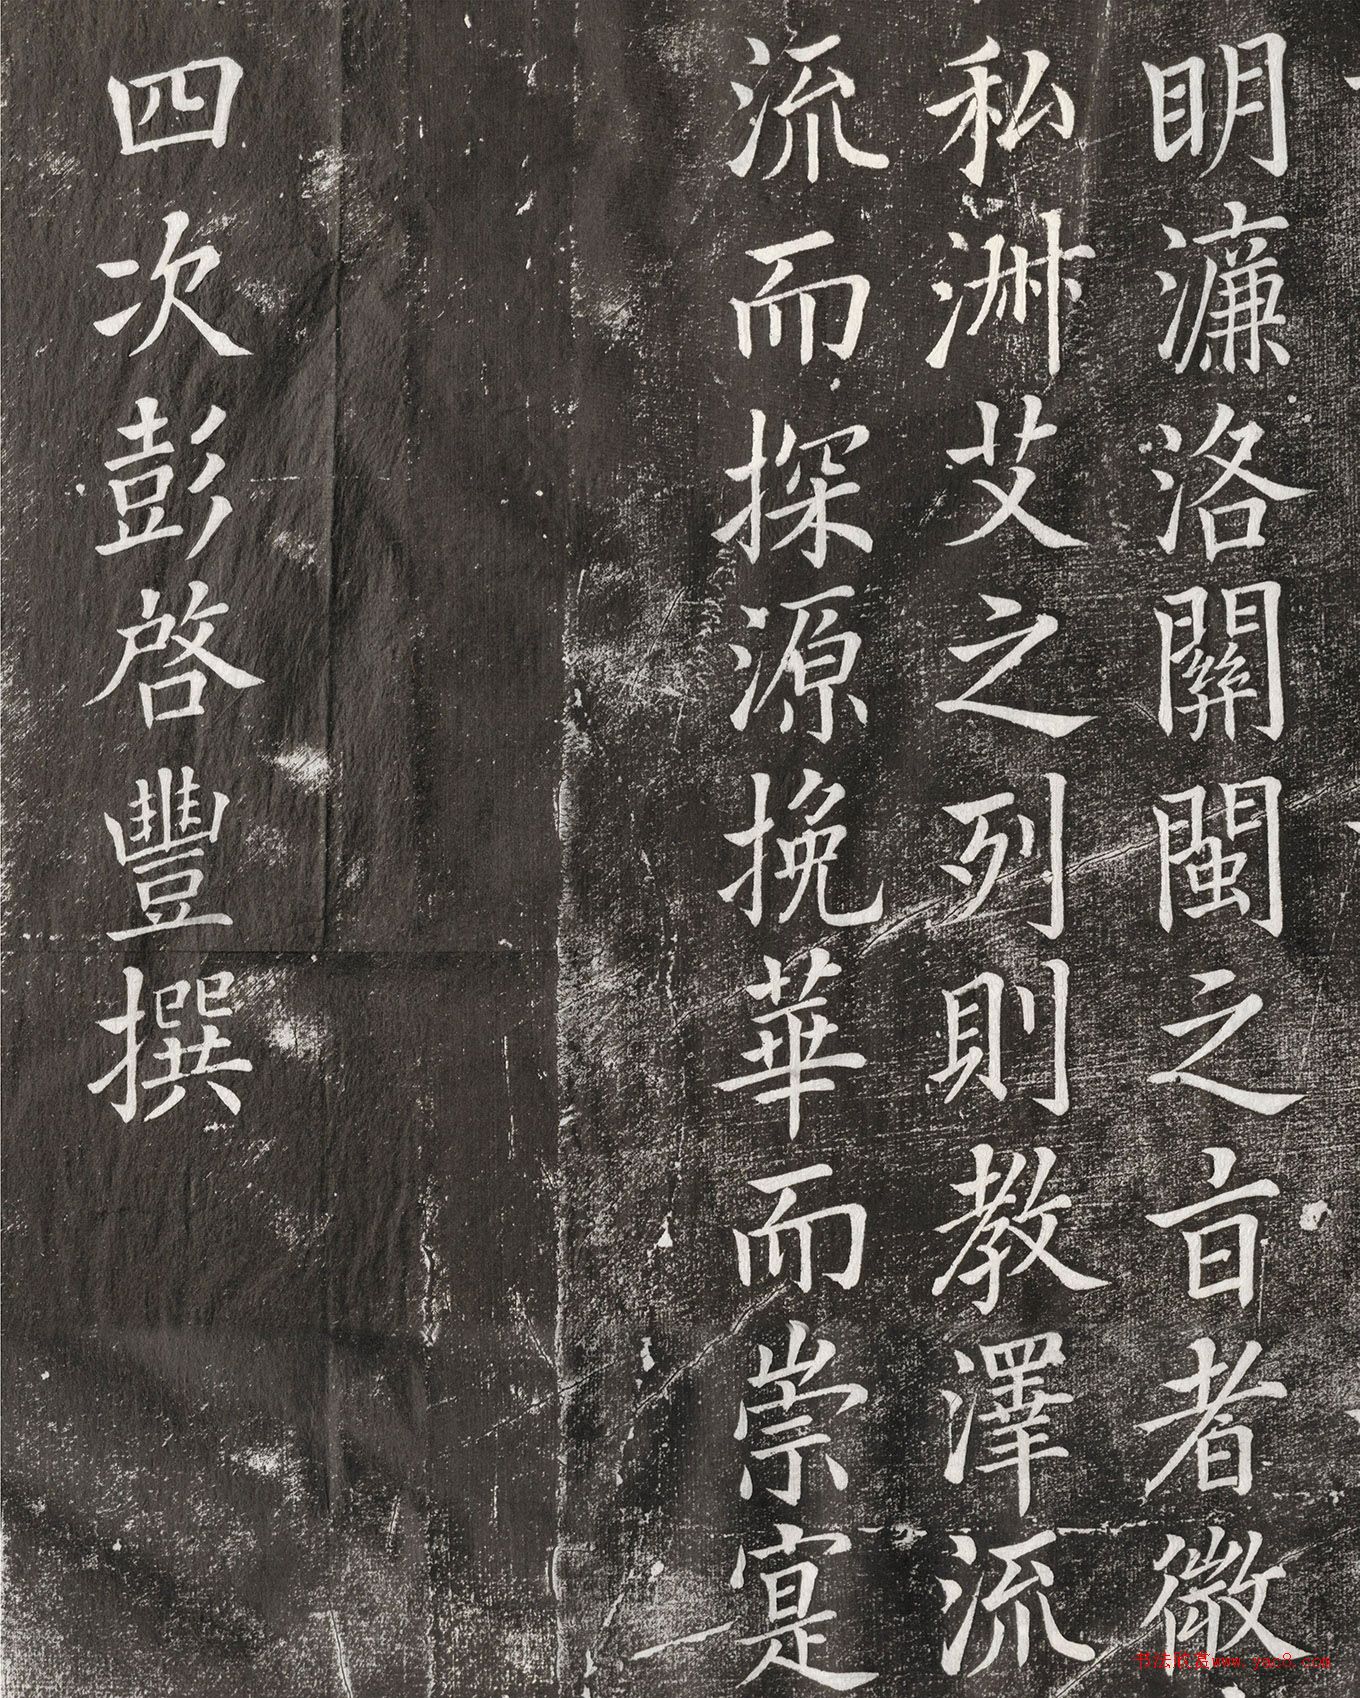 明濂洛關閩之㫖者微
私淋艾之列則教澤流
流而探源挽華而崇寔
四次彭啓豐撰
www.yac8.com